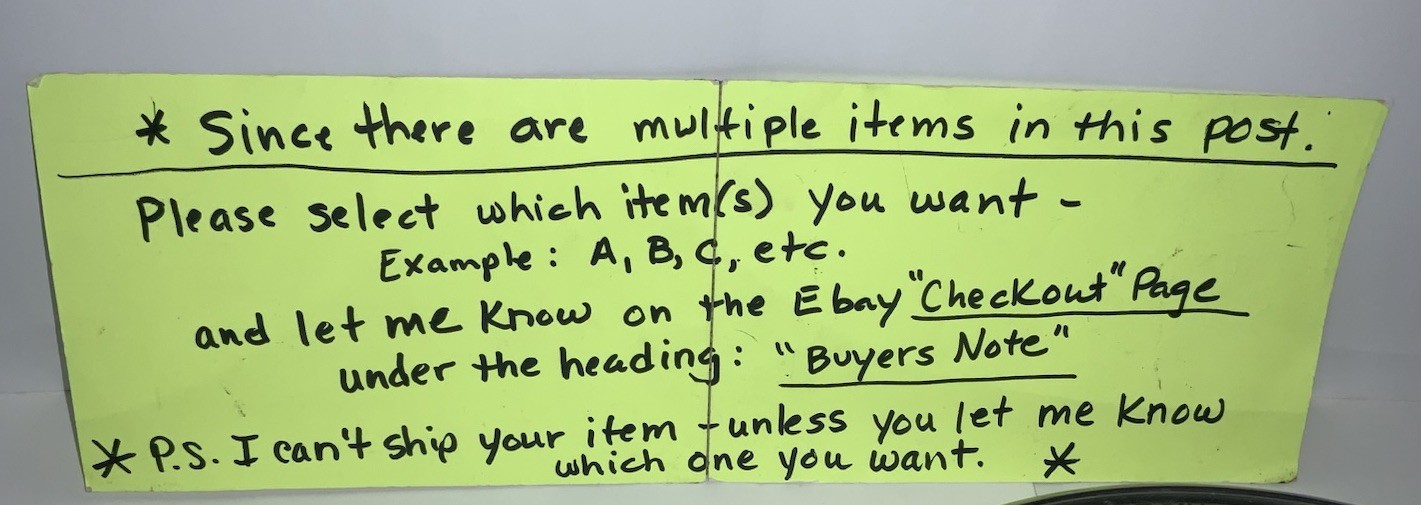 * Since there are multiple items in this post.
Please select which item(s) you want -
Example: A, B, C, etc.
and let me know on the Ebay "Checkout" Page
under the heading: "Buyers Note"
* P.S. I can't ship your item - unless you let me know
which one you want. *